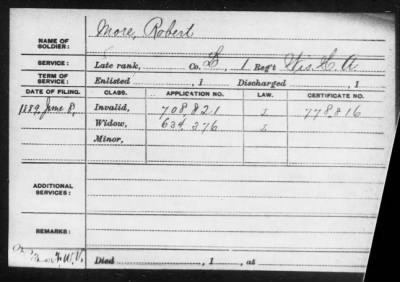 NAME OF SOLDIER: More, Robert
SERVICE: Late rank, Co. L, 1 Reg't Wis. H. A.
TERM OF SERVICE: Enlisted , 1 Discharged , 1
DATE OF FILING. CLASS. APPLICATION NO. LAW. CERTIFICATE NO.
1889, June 8, Invalid, 708,821 778,816
Widow, 634,376
Minor,
ADDITIONAL SERVICES:
REMARKS:
Died , 1 , at